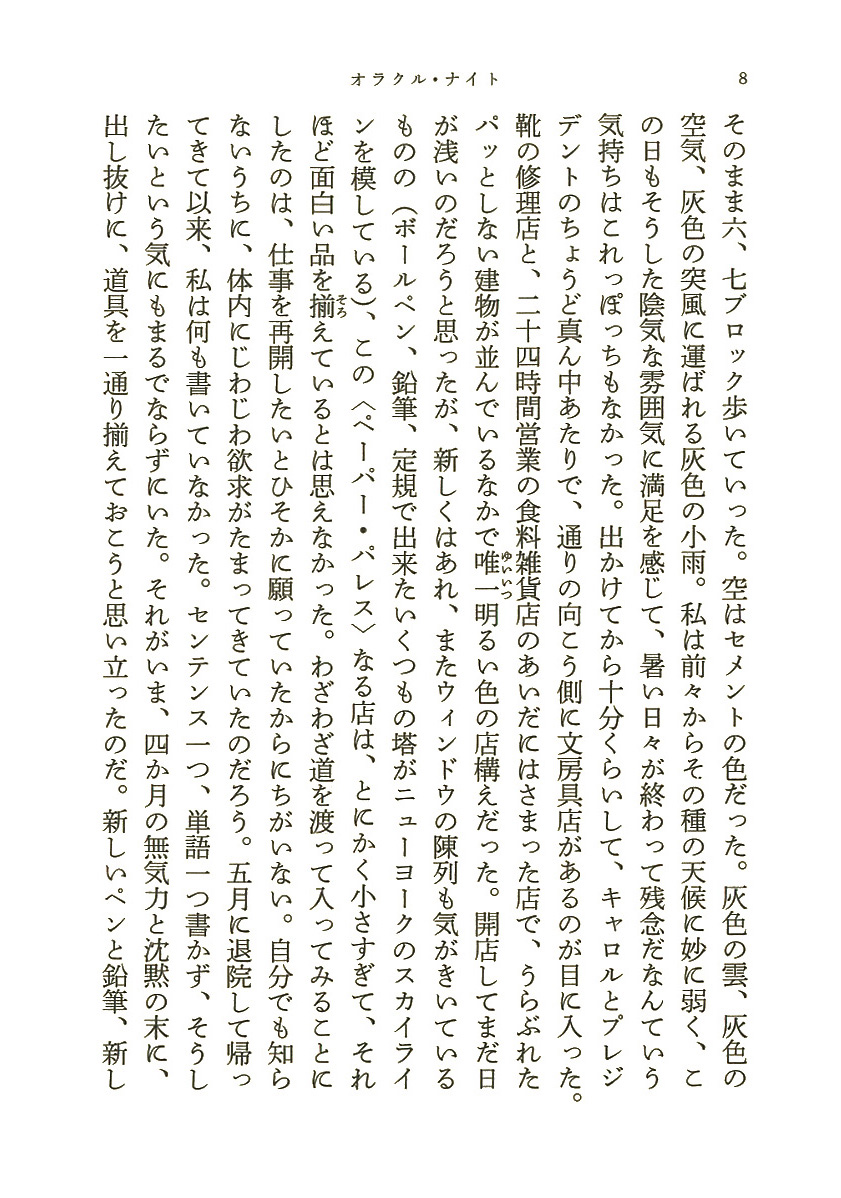 オラクル・ナイト
8
そのまま六、七ブロック歩いていった。空はセメントの色だった。灰色の雲、灰色の
空気、灰色の突風に運ばれる灰色の小雨。私は前々からその種の天候に妙に弱く、こ
の日もそうした陰気な雰囲気に満足を感じて、暑い日々が終わって残念だなんていう
気持ちはこれっぽっちもなかった。出かけてから十分くらいして、キャロルとプレジ
デントのちょうど真ん中あたりで、通りの向こう側に文房具店があるのが目に入った。
靴の修理店と、二十四時間営業の食料雑貨店のあいだにはさまった店で、うらぶれた
パッとしない建物が並んでいるなかで唯一明るい色の店構えだった。開店してまだ日
ゆいいつ
が浅いのだろうと思ったが、新しくはあれ、またウィンドウの陳列も気がきいている
ものの（ボールペン、鉛筆、定規で出来たいくつもの塔がニューヨークのスカイライ
ンを模している）、この〈ペーパー・パレス〉なる店は、とにかく小さすぎて、それ
ほど面白い品を揃えているとは思えなかった。わざわざ道を渡って入ってみることに
そろ
したのは、仕事を再開したいとひそかに願っていたからにちがいない。自分でも知ら
ないうちに、体内にじわじわ欲求がたまってきていたのだろう。五月に退院して帰っ
てきて以来、私は何も書いていなかった。センテンス一つ、単語一つ書かず、そうし
たいという気にもまるでならずにいた。それがいま、四か月の無気力と沈黙の末に、
出し抜けに、道具を一通り揃えておこうと思い立ったのだ。新しいペンと鉛筆、新し